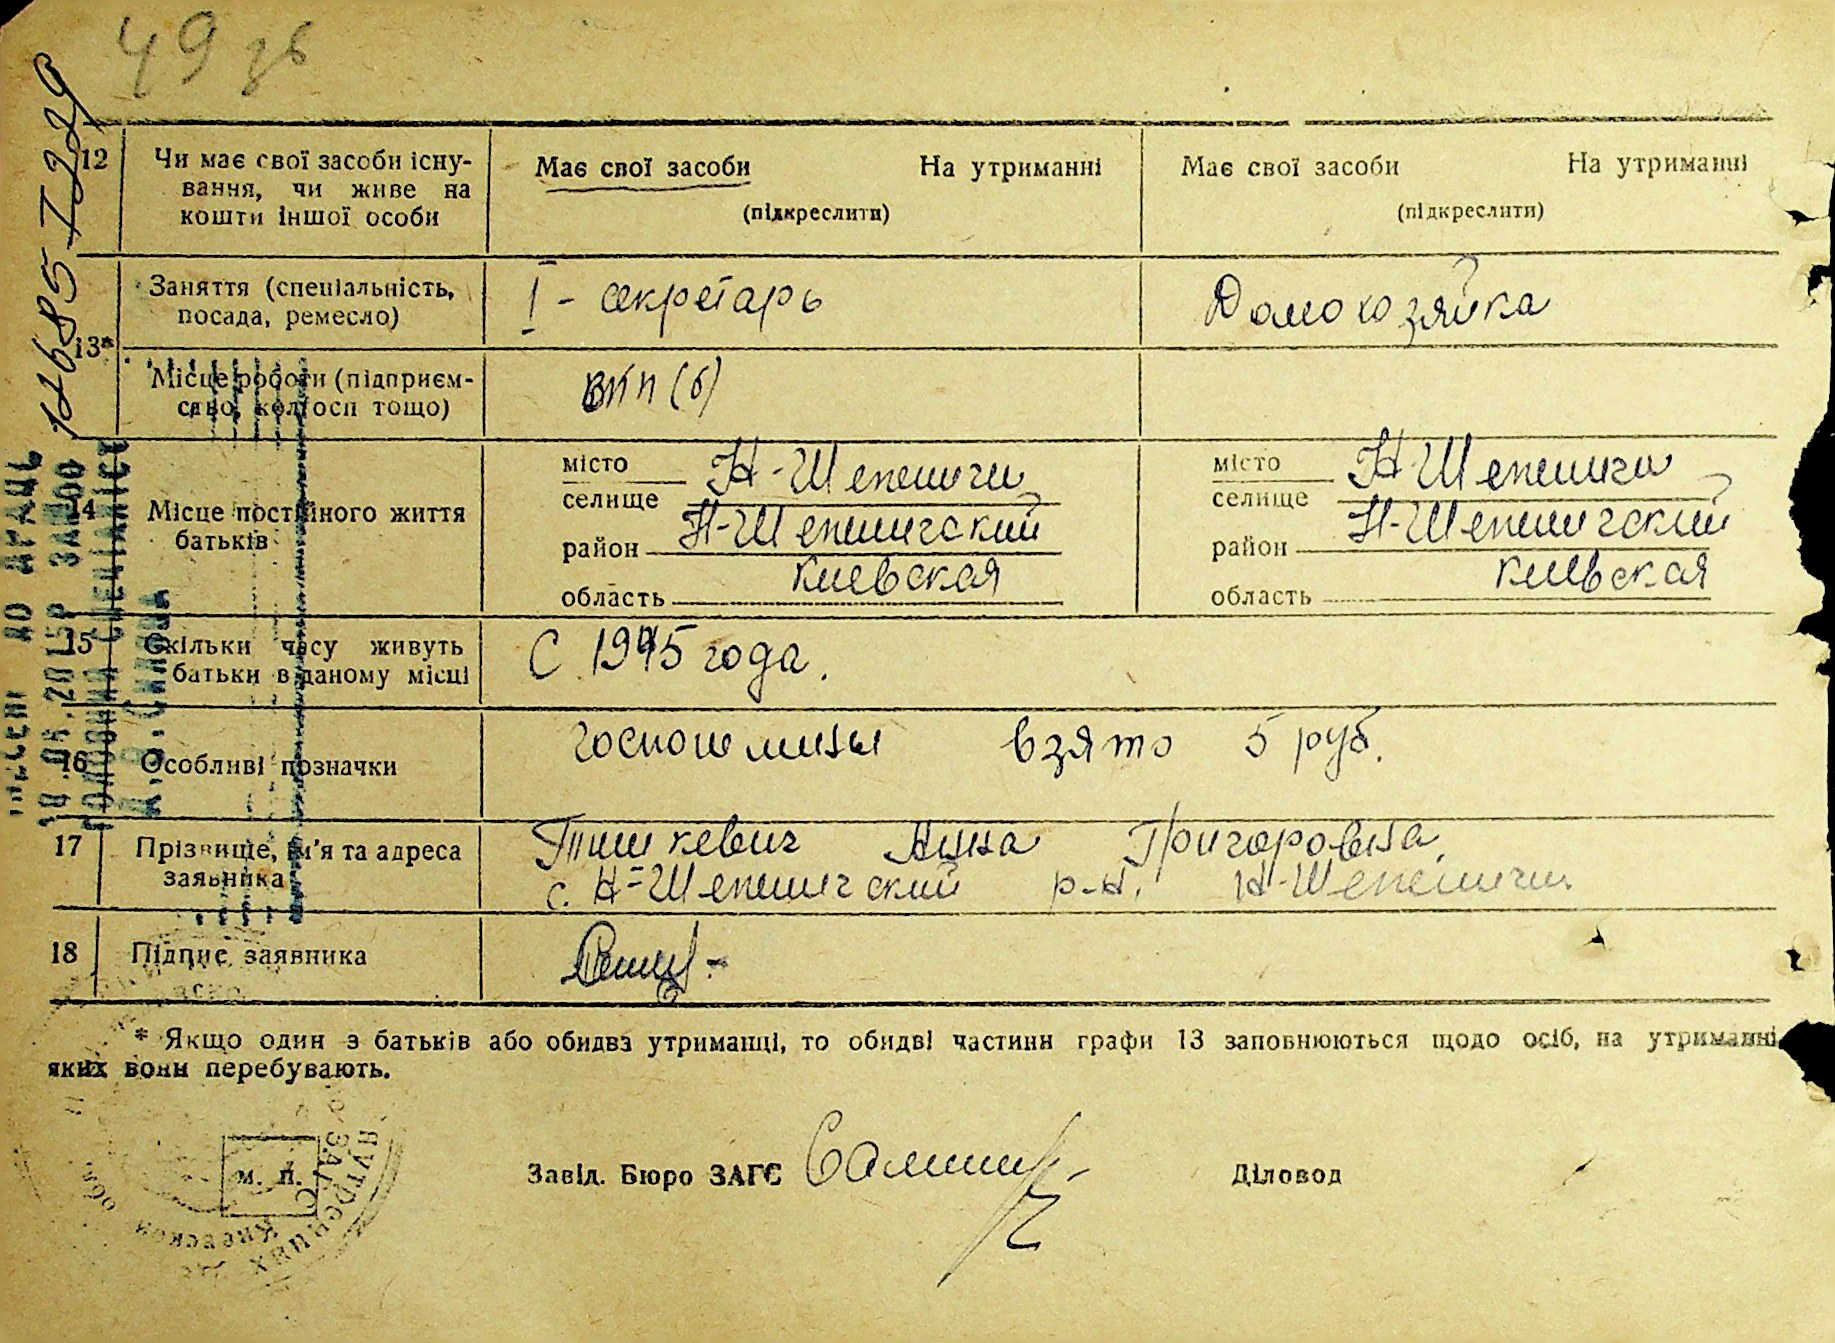 49 зв
12
Чи має свої засоби існу-
вання, чи живе на
кошти іншої особи
Має свої засоби На утриманні
(підкреслити)
Має свої засоби На утриманні
(підкреслити)
13*
Заняття (спеціальність,
посада, ремесло)
I - секретарь
Домохозяйка
Місце роботи (підприєм-
ство, колгосп тощо)
ВКП(б)
14
Місце постійного життя
батьків
місто
селище
Н-Шепеличи
район Н-Шепеличский
область Киевская
місто
селище
Н-Шепеличи
район Н-Шепеличский
область Киевская
15
Скільки часу живуть
батьки в даному місці
С 1945 года.
16
Особливі позначки
госпошлины взято 5 руб.
17
Прізвище, ім'я та адреса
заявника
Тишкевич Анна Григоровна
с. Н-Шепеличский р-н. Н-Шепеличи
18
Підпис заявника
* Якщо один з батьків або обидва утриманці, то обидві частини графи 13 заповнюються щодо осіб, на утриманні
яких вони перебувають.
м. п.
Завід. Бюро ЗАГС
Діловод